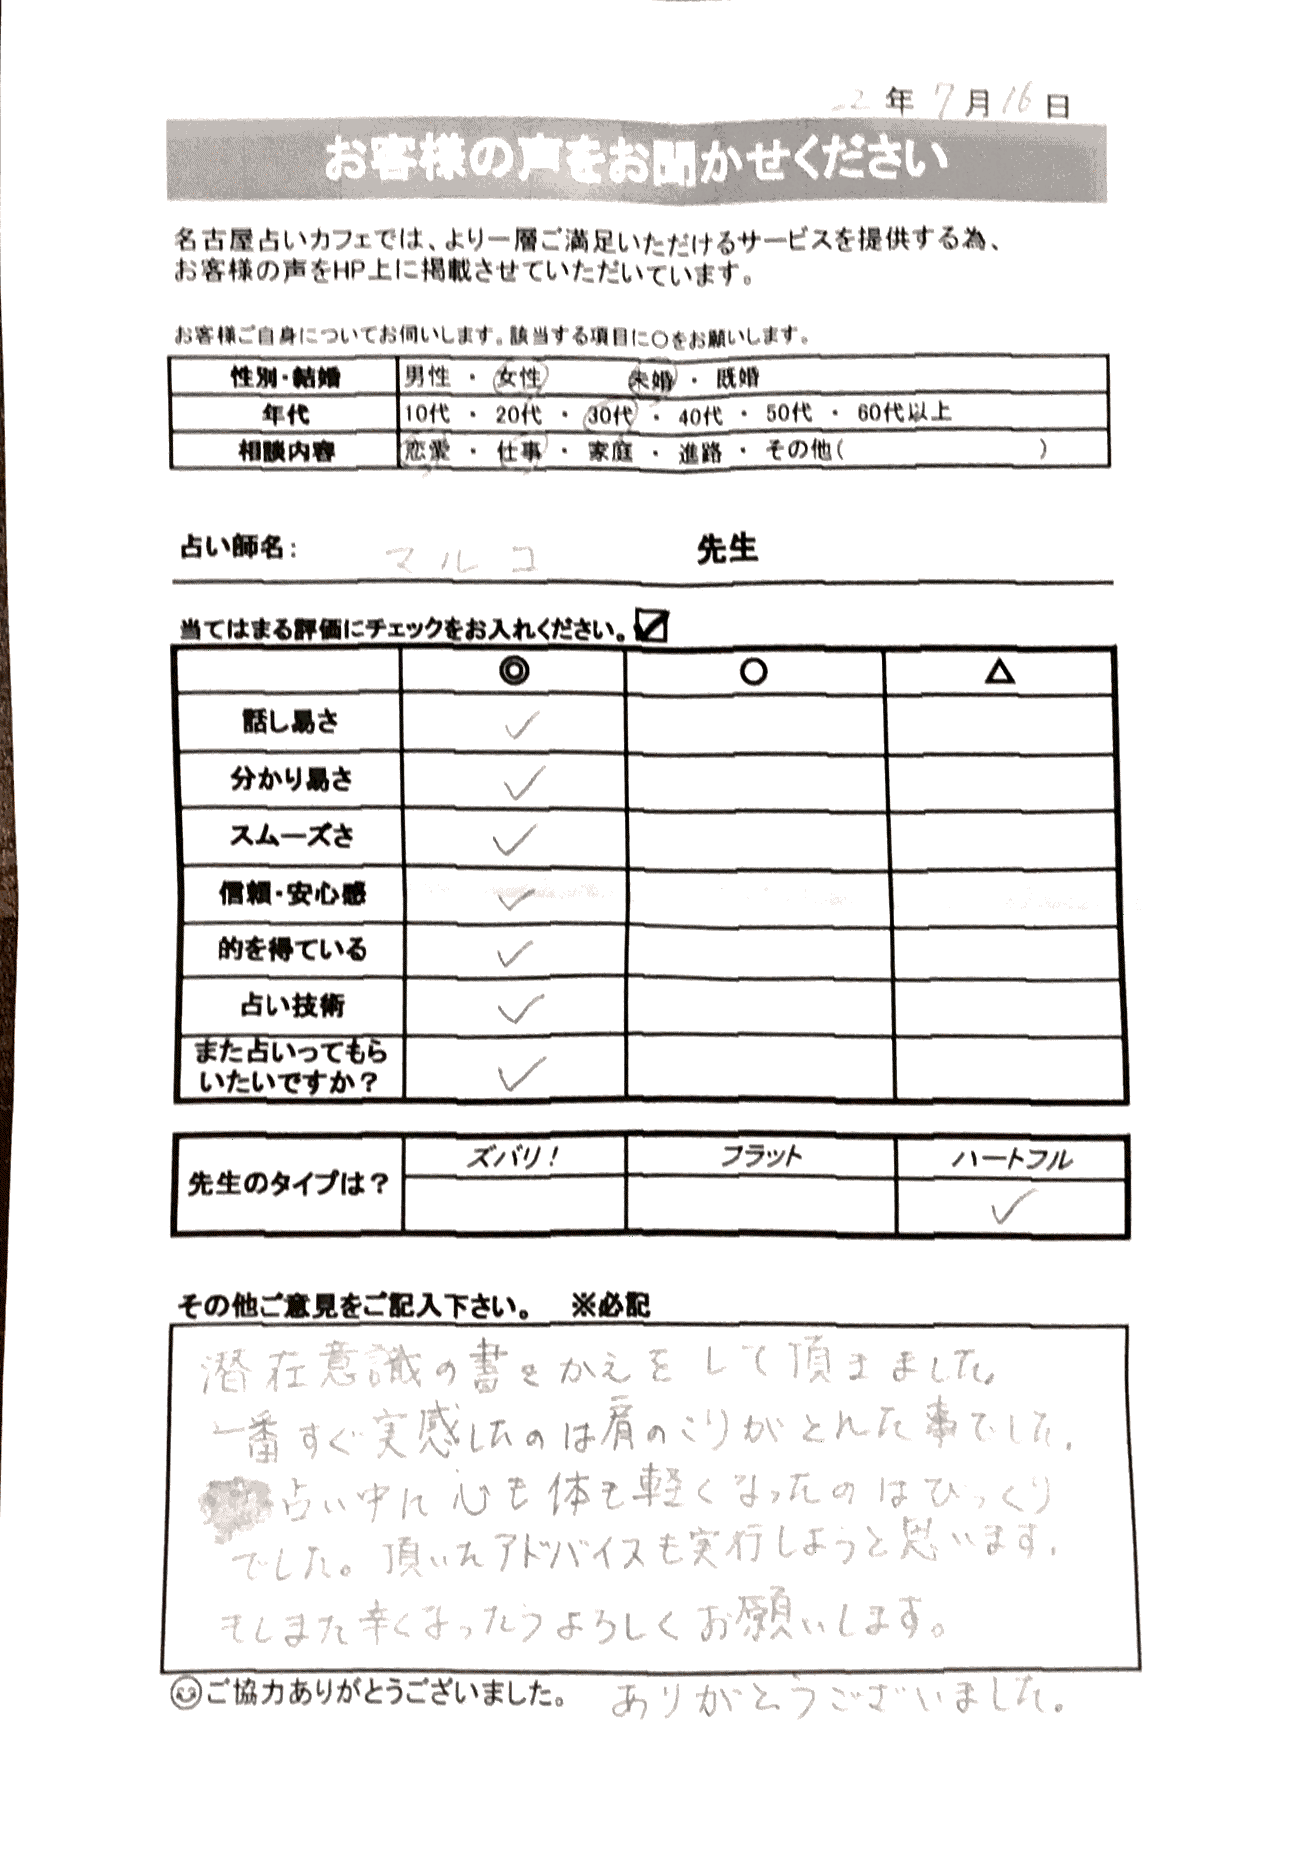 22年7月16日
お客様の声をお聞かせください
名古屋占いカフェでは、より一層ご満足いただけるサービスを提供する為、
お客様の声をHP上に掲載させていただいています。
お客様ご自身についてお伺いします。該当する項目に〇をお願いします。
性別・結婚 男性 ・ 女性 未婚 ・ 既婚
年代 10代 ・ 20代 ・ 30代 ・ 40代 ・ 50代 ・ 60代以上
相談内容 恋愛 ・ 仕事 ・ 家庭 ・ 進路 ・ その他( )
占い師名: マルコ 先生
当てはまる評価にチェックをお入れください。☑
◎ ○ △
話し易さ ✓
分かり易さ ✓
スムーズさ ✓
信頼・安心感 ✓
的を得ている ✓
占い技術 ✓
また占いってもら
いたいですか? ✓
ズバリ! フラット ハートフル
先生のタイプは? ✓
その他ご意見をご記入下さい。 ※必記
潜在意識の書きかえをして頂きました。
一番すぐ実感したのは肩のこりがとれた事でした。
占い中に心も体も軽くなったのはびっくり
でした。頂いたアドバイスも実行しようと思います。
もしまた辛くなったらよろしくお願いします。
ご協力ありがとうございました。 ありがとうございました。